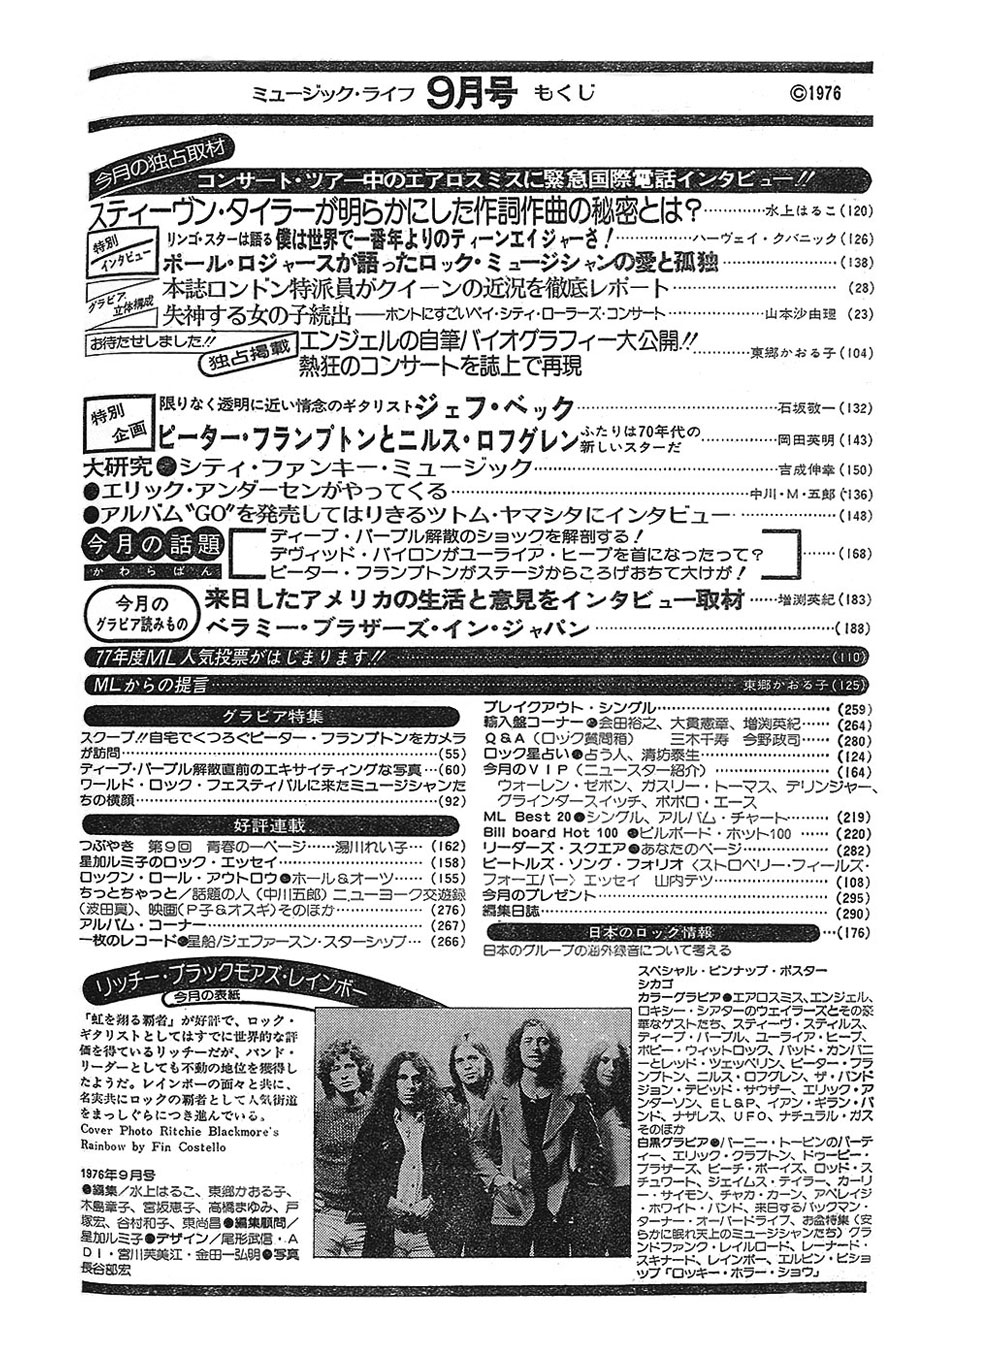 ミュージック・ライフ 9月号 もくじ ©1976
今月の独占取材
コンサート・ツアー中のエアロスミスに緊急国際電話インタビュー!!
スティーヴン・タイラーが明らかにした作詞作曲の秘密とは?…………水上はるこ(120)
特別インタビュー
リンゴ・スターは語る 僕は世界で一番年よりのティーンエイジャーさ!…………ハーヴェイ・クバニック(126)
ポール・ロジャースが語ったロック・ミュージシャンの愛と孤独…………(138)
グラビア立体構成
本誌ロンドン特派員がクイーンの近況を徹底レポート…………(28)
失神する女の子続出――ホントにすごいベイ・シティ・ローラーズ・コンサート…………山本沙由理 (23)
お待たせしました!!
独占掲載
エンジェルの自筆バイオグラフィー大公開!!
熱狂のコンサートを誌上で再現…………東郷かおる子(104)
特別企画
限りなく透明に近い情念のギタリスト ジェフ・ベック…………石坂敬一(132)
ピーター・フランプトンとニルス・ロフグレン ふたりは70年代の新しいスターだ…………岡田英明(143)
大研究●シティ・ファンキー・ミュージック…………吉成伸幸(150)
●エリック・アンダーセンがやってくる…………中川・M・五郎(136)
●アルバム“GO”を発売してはりきるツトム・ヤマシタにインタビュー…………(148)
今月の話題
かわらばん
ディープ・パープル解散のショックを解剖する!
デヴィッド・バイロンがユーライア・ヒープを首になったって?……(168)
ピーター・フランプトンがステージからころげおちて大けが!
今月のグラビア読みもの
来日したアメリカの生活と意見をインタビュー取材……増渕英紀(183)
ベラミー・ブラザーズ・イン・ジャパン…………(188)
77年度ML人気投票がはじまります!!…………(110)
MLからの提言…………東郷かおる子(125)
グラビア特集
スクープ!!自宅でくつろぐピーター・フランプトンをカメラ
が訪問…………(55)
ディープ・パープル解散直前のエキサイティングな写真…(60)
ワールド・ロック・フェスティバルに来たミュージシャンた
ちの横顔…………(92)
好評連載
つぶやき 第9回 青春の一ページ……湯川れい子…(162)
星加ルミ子のロック・エッセイ…………(158)
ロックン・ロール・アウトロウ●ホール&オーツ……(155)
ちっとちゃっと/話題の人(中川五郎)ニューヨーク交遊録
(波田真)、映画(P子&オスギ)そのほか…………(276)
アルバム・コーナー…………(267)
一枚のレコード●星船/ジェファースン・スターシップ…(266)
ブレイクアウト・シングル…………(259)
輸入盤コーナー●会田裕之、大貫憲章、増渕英紀……(264)
Q&A(ロック質問箱) 三木千寿 今野政司……(280)
ロック星占い●占う人、清坊泰生…………(124)
今月のVIP(ニュースター紹介)…………(164)
ウォーレン・ゼボン、ガスリー・トーマス、デリンジャー、
グラインダースイッチ、ポポロ・エース
ML Best 20●シングル、アルバム・チャート……(219)
Bill board Hot 100 ●ビルボード・ホット100……(220)
リーダーズ・スクエア●あなたのページ…………(282)
ビートルズ・ソング・フォリオ〈ストロベリー・フィールズ・
フォーエバー〉エッセイ 山内テツ…………(108)
今月のプレゼント…………(295)
編集日誌…………(290)
日本のロック情報…(176)
日本のグループの海外録音について考える
リッチー・ブラックモアズ・レインボー
今月の表紙
「虹を翔る覇者」が好評で、ロック・
ギタリストとしてはすでに世界的な評
価を得ているリッチーだが、バンド・
リーダーとしても不動の地位を獲得し
たようだ。レインボーの面々と共に、
名実共にロックの覇者として人気街道
をまっしぐらにつき進んでいる。
Cover Photo Ritchie Blackmore's
Rainbow by Fin Costello
1976年9月号
●編集/水上はるこ、東郷かおる子、
木島章子、宮坂恵子、高橋まゆみ、戸
塚宏、谷村和子、東尚昌●編集顧問/
星加ルミ子●デザイン/尾形武信・A
DI・宮川芙美江・金田一弘明●写真
長谷部宏
スペシャル・ピンナップ・ポスター
シカゴ
カラーグラビア●エアロスミス、エンジェル、
ロキシー・シアターのウェイラーズとその豪
華なゲストたち、スティーヴ・スティルス、
ディープ・パープル、ユーライア・ヒープ、
ボビー・ウィットロック、バッド・カンパニ
ーとレッド・ツェッペリン、ピーター・フラ
ンプトン、ニルス・ロフグレン、ザ・バンド
ジョン・デビッド・サウザー、エリック・ア
ンダーソン、EL&P、イアン・ギラン・バ
ンド、ナザレス、UFO、ナチュラル・ガス
そのほか
白黒グラビア●バーニー・トーピンのパーテ
ィー、エリック・クラプトン、ドゥービー・
ブラザーズ、ビーチ・ボーイズ、ロッド・ス
チュワート、ジェイムス・テイラー、カーリ
ー・サイモン、チャカ・カーン、アベレイジ
・ホワイト・バンド、来日するバックマン・
ターナー・オーバードライブ、お盆特集(安
らかに眠れ天上のミュージシャンたち)グラ
ンドファンク・レイルロード、レーナード・
スキナード、レインボー、エルビン・ビショ
ップ「ロッキー・ホラー・ショウ」